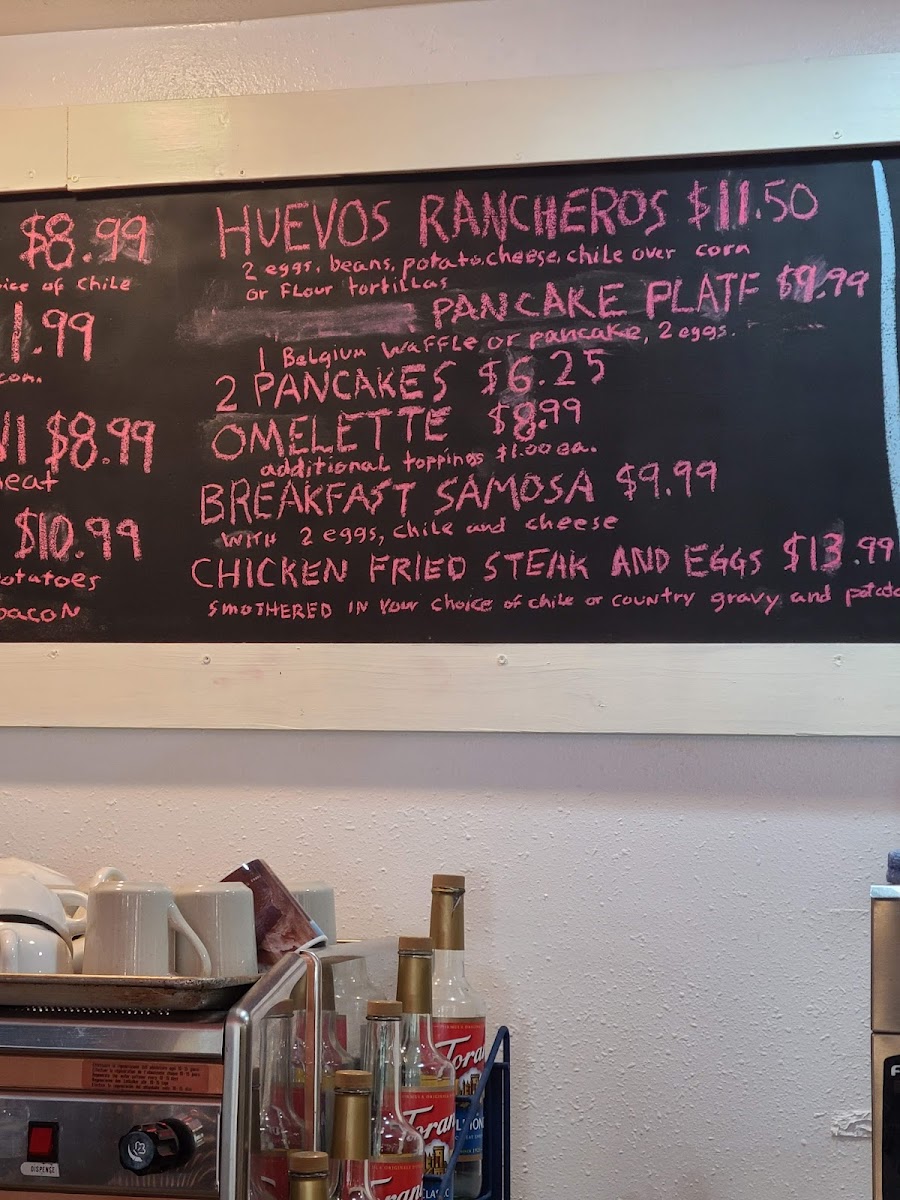 $8.99
of chile
1.99
con.
$8.99
eat
$10.99
otatoes
bacon
HUEVOS RANCHEROS $11.50
2 eggs, beans, potato, cheese, chile over corn
or Flour tortillas
PANCAKE PLATE $9.99
1 Belgium waffle or pancake, 2 eggs.
2 PANCAKES $6.25
OMELETTE $8.99
additional toppings $1.00 ea.
BREAKFAST SAMOSA $9.99
WITH 2 eggs, chile and cheese
CHICKEN FRIED STEAK AND EGGS $13.99
SMOTHERED IN Your choice of chile or country gravy and potato
Toran
Toran
Toran
DISPENSE